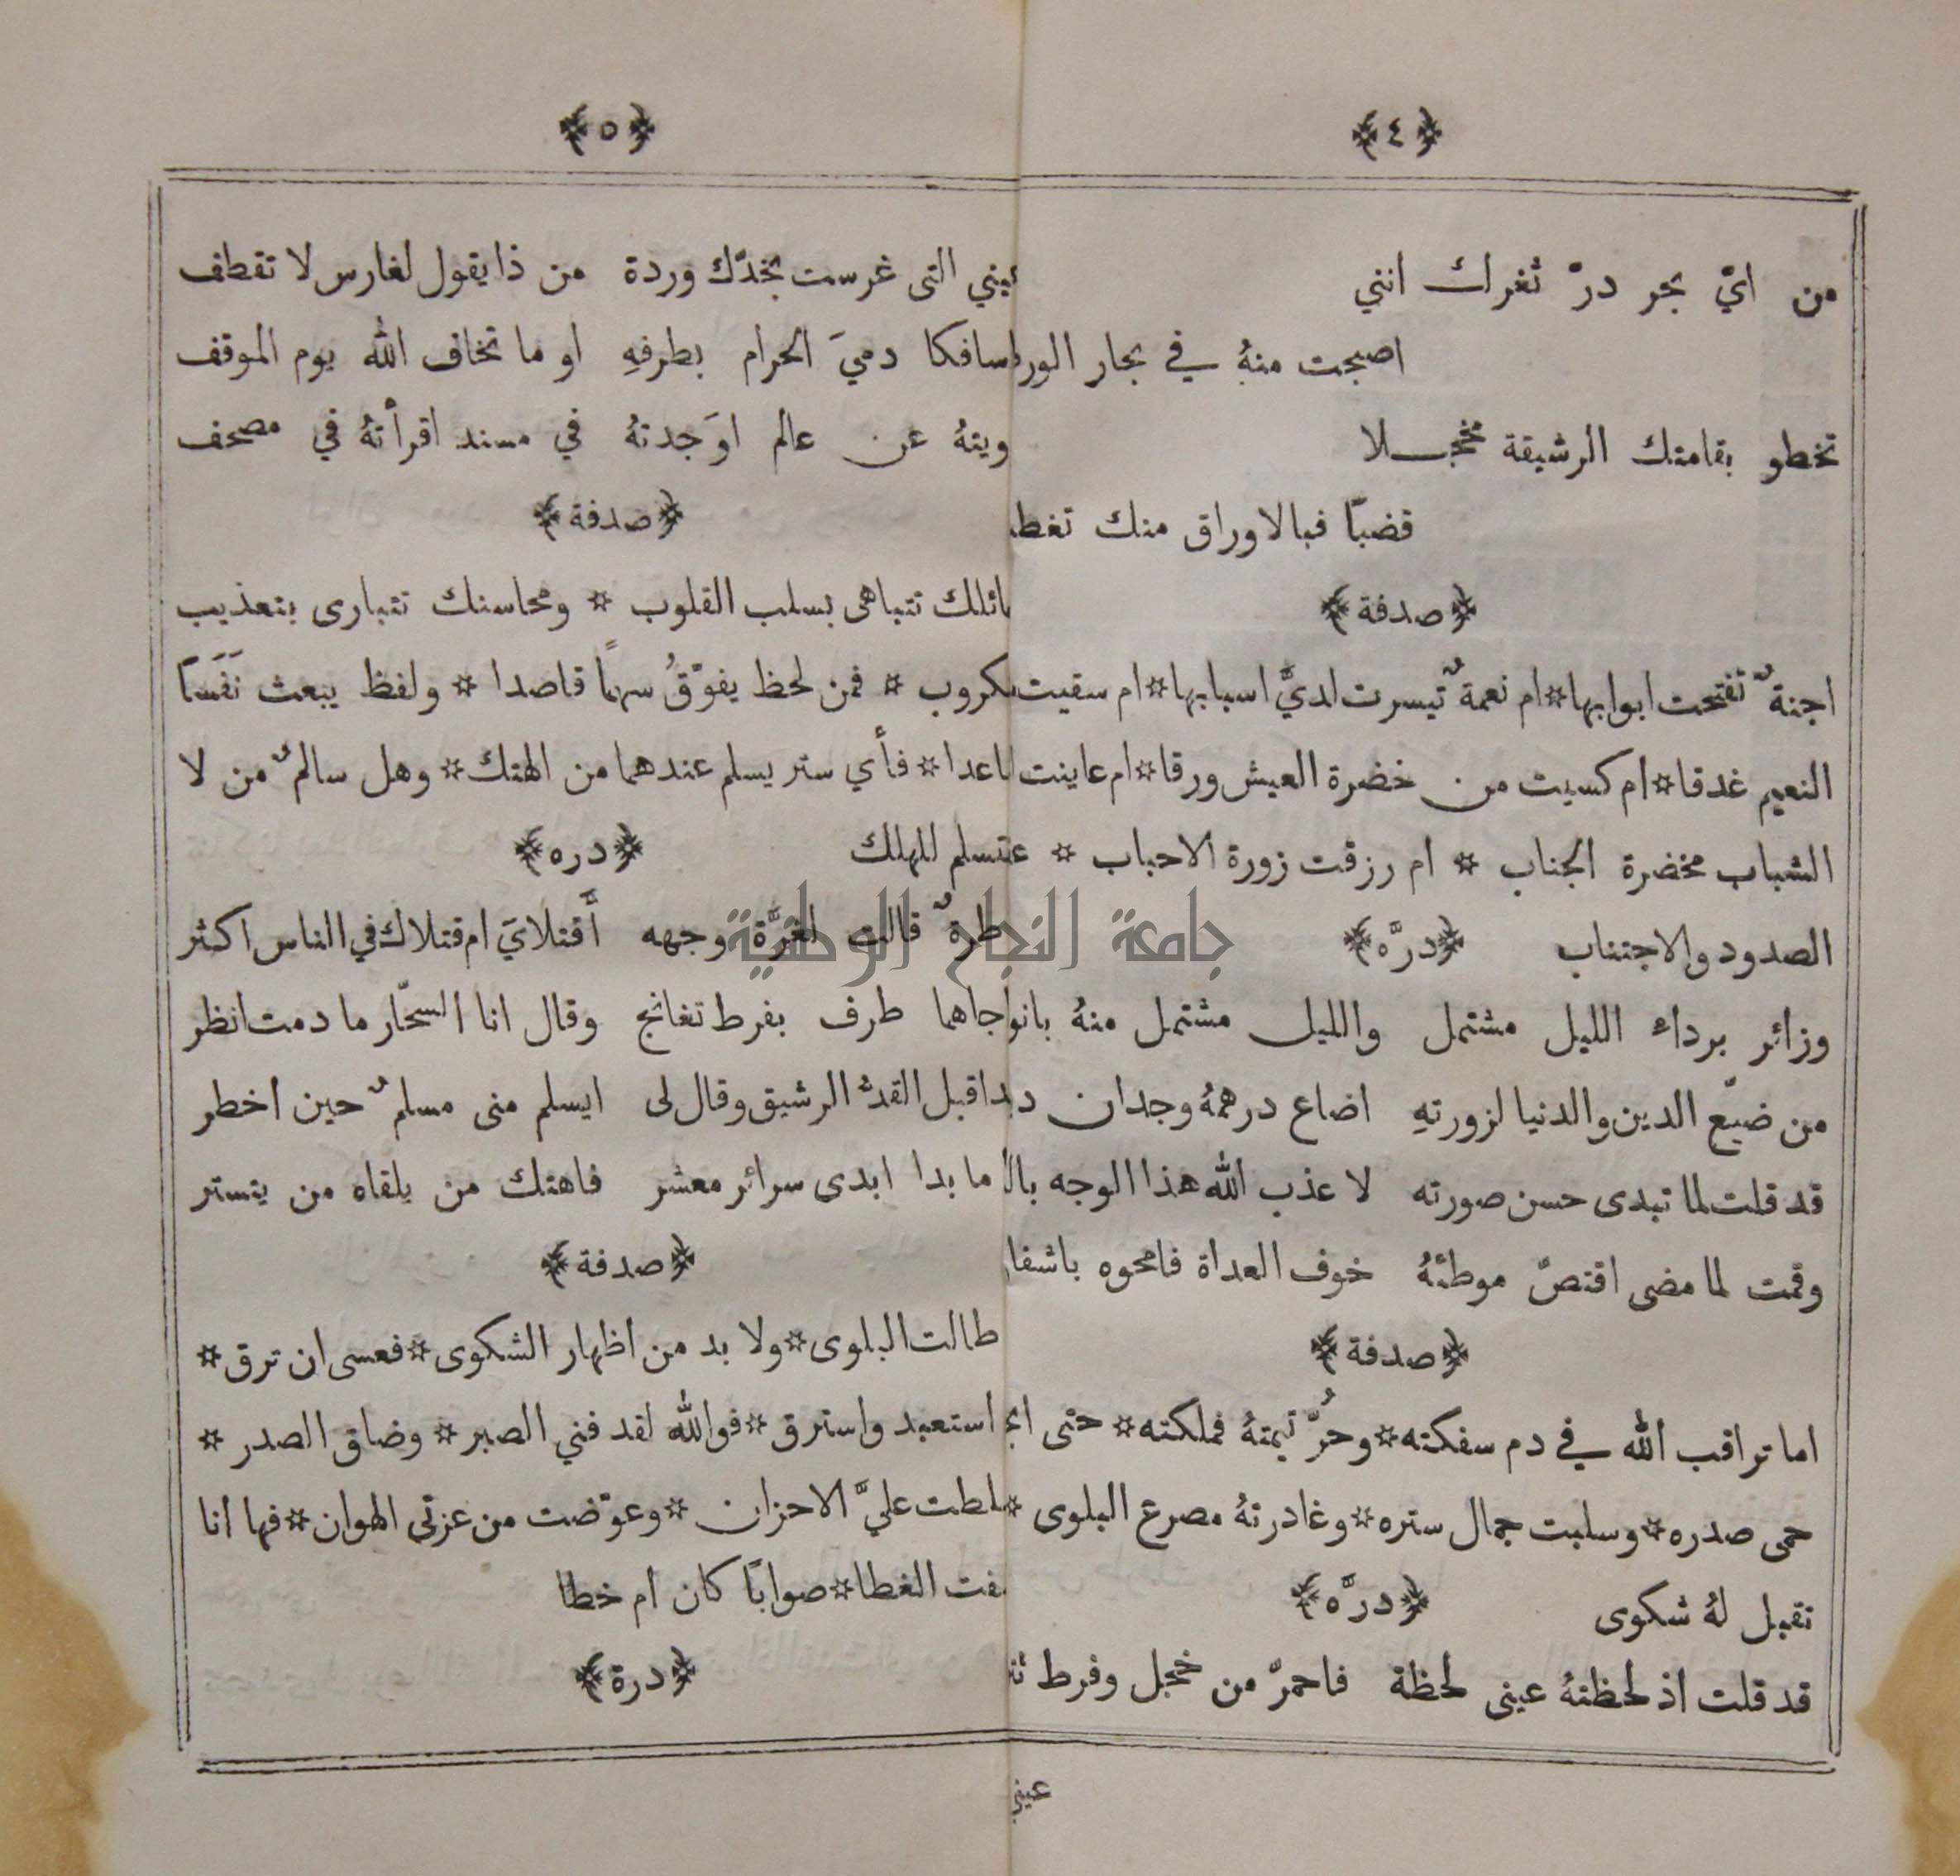 ﴿٤﴾
من ايّ بحر درّ ثغرك انني
اصبحت منهُ في بحار
تخطو بقامتك الرشيقة مخجلا
قضبًا فبالاوراق منك
﴿صدفة﴾
اجنةٌ تفتحت ابوابها * ام نعمةٌ تيسرت لديَّ اسبابها * ام سقيت
النعيم غدقا * ام كسيت من خضرة العيش ورقا * ام عاينت
الشباب مخضرة الجناب * ام رزقت زورة الاحباب *
الصدود والاجتناب ﴿درَّه﴾
وزائر برداء الليل مشتمل والليل مشتمل منهُ
من ضيّع الدين والدنيا لزورتهِ اضاع درهمهُ وجدان
قد قلت لما تبدى حسن صورته لا عذب الله هذا الوجه
وقمت لما مضى اقتصّ موطئهُ خوف العداة فامحوه
﴿صدفة﴾
اما تراقب الله في دم سفكته * وحُرّ تيمتهُ فملكته * حتى
حمى صدره * وسلبت جمال ستره * وغادرتهُ مصرع البلوى *
تقبل لهُ شكوى ﴿درَّه﴾
قد قلت اذ لحظتهُ عيني لحظة فاحمرّ من خجل وفرط
﴿٥﴾
التي غرست بخدّك وردة من ذا يقول لغارس لا تقطف
دميَ الحرام بطرفهِ او ما تخاف الله يوم الموقف
عن عالم اوَجدتهُ في مسند اقرأتهُ في مصحف
﴿صدفة﴾
تتباهى بسلب القلوب * ومحاسنك تتبارى بتعذيب
* فمن لحظ يفوّقُ سهمًا قاصدا * ولفظ يبعث نَفَسًا
* فأي ستر يسلم عندهما من الهتك * وهل سالمٌ من لا
للهلك ﴿دره﴾
قالت لغرَّة وجهه أَقتلايَ ام قتلاك في الناس اكثر
طرف بفرط تغانج وقال انا السحّار ما دمت انظر
اقبل القدّ الرشيق وقال لي ايسلم مني مسلمٌ حين اخطر
ما بدا ابدى سرائر معشر فاهتك من يلقاه من يتستر
﴿صدفة﴾
طالت البلوى * ولا بد من اظهار الشكوى * فعسى ان ترق *
استعبد واسترق * فوالله لقد فني الصبر * وضاق الصدر *
عليَّ الاحزان * وعوّضت من عزتي الهوان * فها انا
الغطا * صوابًا كان ام خطا
﴿درة﴾
جامعة النجاح الوطنية